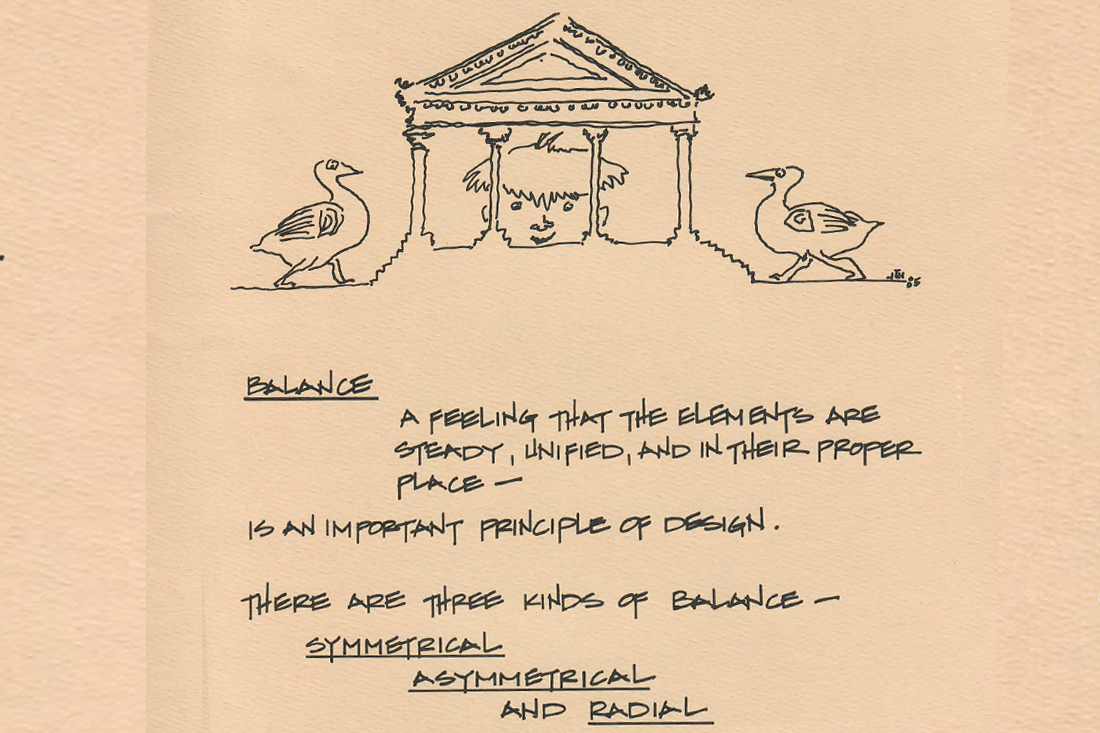 BALANCE
A FEELING THAT THE ELEMENTS ARE
STEADY, UNIFIED, AND IN THEIR PROPER
PLACE —
IS AN IMPORTANT PRINCIPLE OF DESIGN.
THERE ARE THREE KINDS OF BALANCE —
SYMMETRICAL
ASYMMETRICAL
AND RADIAL